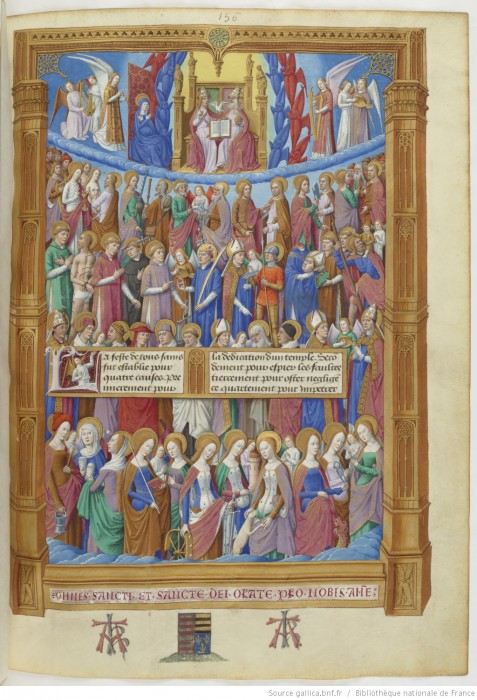 156
La feste de tous sains
fut establie pour
quatre causes. Pre
mierement pour
la dedication d'un temple. Seco
dement pour espier les faultes
tiercement pour oster neglige
ce quartement pour impetrer
OMNES · SANCTI · ET · SANCTE · DEI · ORATE · PRO · NOBIS · AME
Source gallica.bnf.fr / Bibliothèque nationale de France